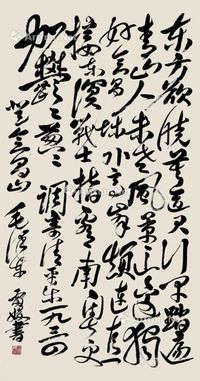 东方欲晓莫道君行早踏遍
青山人未老风景这边独
好会昌城外高峰颠连直
接东溟战士指看南粤更
加鬱々葱々 调寄清平乐 一九三四
登会昌山
毛泽东 书